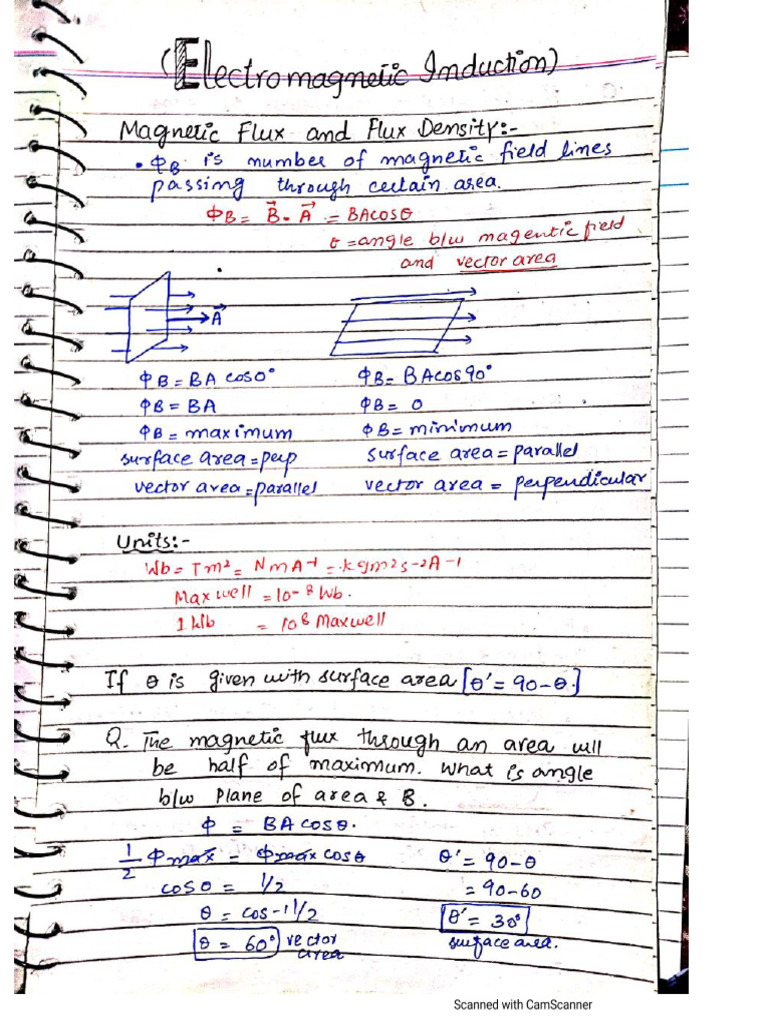 (Electromagnetic Induction)
Magnetic Flux and Flux Density:-
• ΦB is number of magnetic field lines
passing through certain area.
ΦB = B⃗ . A⃗ = BAcosθ
θ = angle b/w magentic field
and vector area
A⃗
ΦB = BA cos0°
ΦB = BAcos90°
ΦB = BA
ΦB = 0
ΦB = maximum
ΦB = minimum
surface area = perp
surface area = parallel
vector area = parallel
vector area = perpendicular
Units:-
Wb = Tm² = NmA⁻¹ = kgm²s-2A-1
Maxwell = 10-8 Wb.
1 Wb = 10⁸ Maxwell
If θ is given with surface area [θ' = 90-θ.]
Q. The magnetic flux through an area will
be half of maximum. What is angle
b/w Plane of area & B.
Φ = BAcosθ.
1/2 Φmax = Φmax cosθ
θ' = 90-θ
cosθ = 1/2
= 90-60
θ = cos-1 1/2
θ' = 30°
θ = 60° vector area
surface area.
Scanned with CamScanner